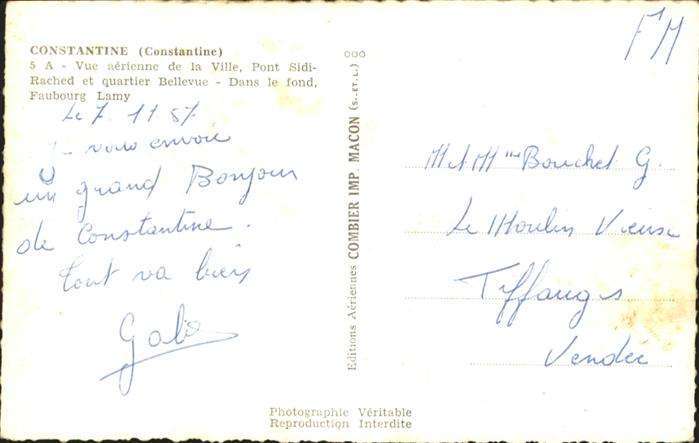 CONSTANTINE (Constantine)
5 A - Vue aérienne de la Ville, Pont Sidi-
Rached et quartier Bellevue - Dans le fond,
Faubourg Lamy
Le 7 11 57
Je vous envoie
un grand Bonjour
de Constantine.
Tout va bien
Gabi
Editions Aériennes COMBIER IMP. MACON (S.-ET-L.) 000
FM
M et Mme Bouchet G.
Le Moulin Vieux
Tiffauges
Vendée
Photographie Véritable
Reproduction Interdite